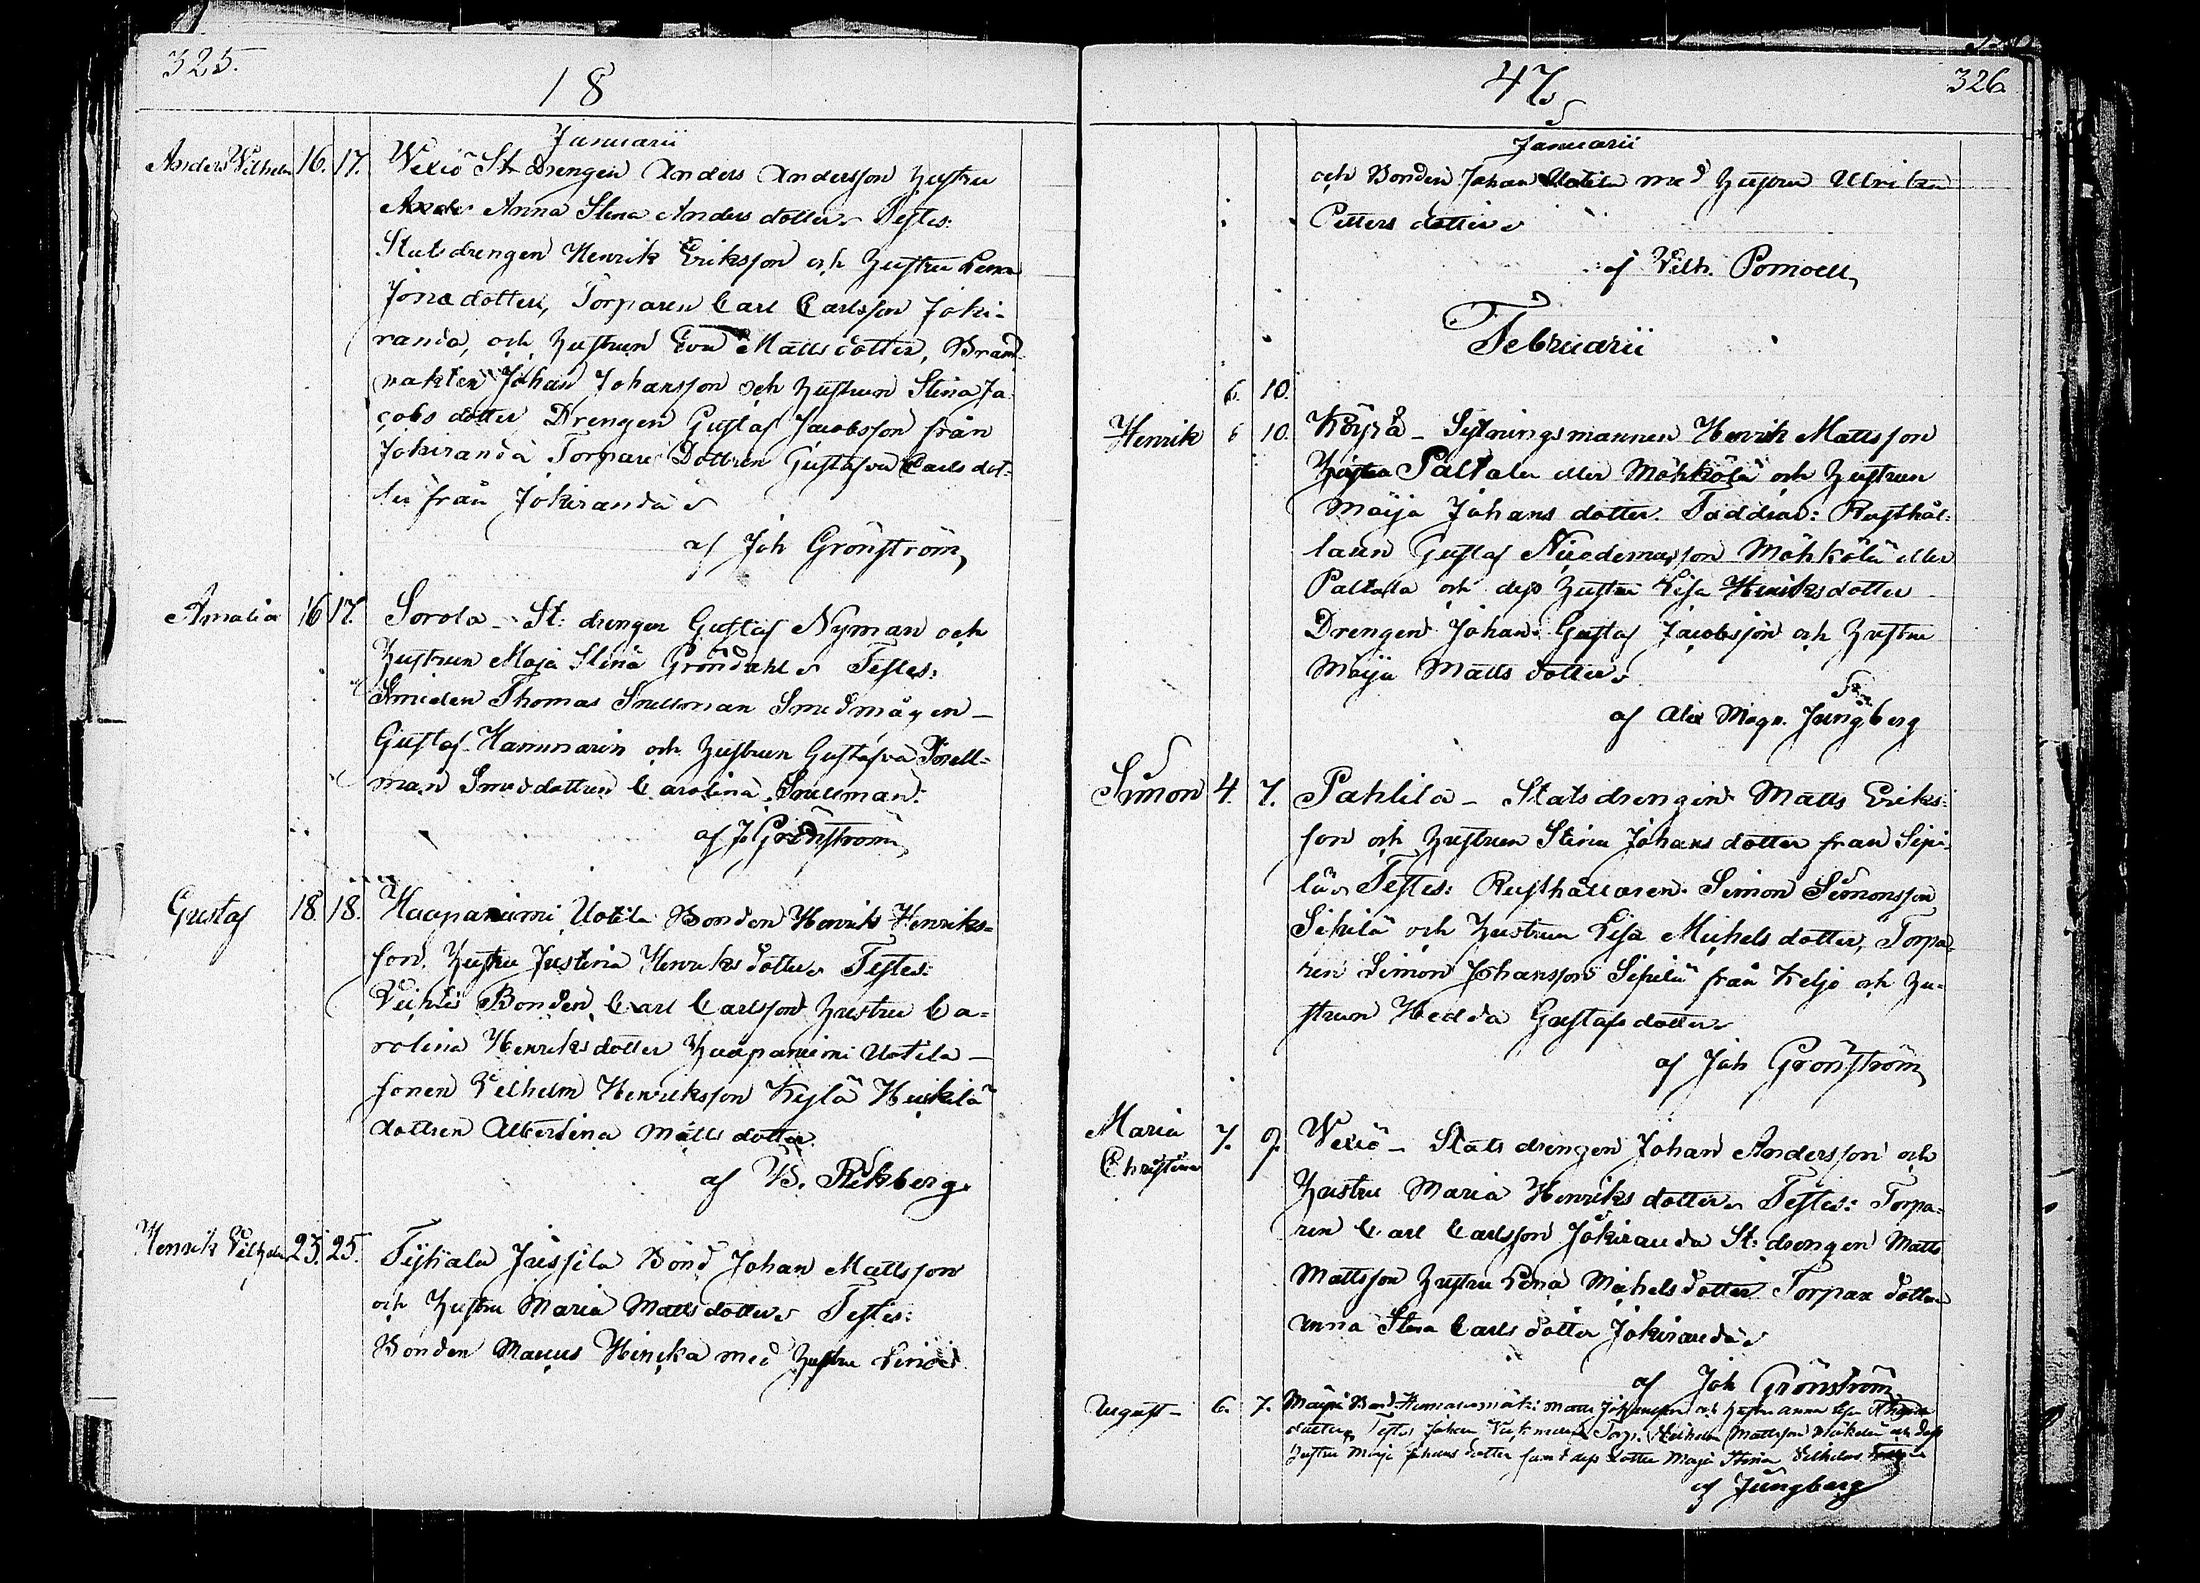 325.
18
Januarii
Anders Vilhelm 16. 17. Wexiö St. Drengen Anders Andersson hustru
Anna Stina Andersdotter Testes:
Statsdrengen Henrik Eriksson och hustru Lena
Jonadotter, Torparen Carl Carlsson Joki-
randa, och hustrun Eva Mattsdotter, Brand-
vakten Johan Johansson och hustrun Stina Ja-
cobsdotter Drengen Gustaf Jacobsson från
Jokiranda Torpare Dottren Gustafva Carlsdot-
ter från Jokiranda
af Joh Grönström
Amalia 16 17. Sorola - St: drengen Gustaf Nyman och
hustrun Maja Stina Gröndahl Testes:
Smeden Thomas Snellman Smedmågen -
Gustaf Hammarin och hustrun Gustafva Snell-
man Smeddottren Carolina Snellman.
af J. Grönström
Gustaf 18. 18. Haapaniemi Uotila Bonden Henrik Henriks-
son. hustru Justina Henriksdotter Testes:
Bonden Carl Carlsson hustru Ca-
rolina Henriksdotter Haapaniemi Uotila -
sonen Vilhelm Henriksson Kylä Heikilä
dottren Albertina Mattsdotter.
af
Henrik Vilhelm 23. 25. Jussila Bond Johan Mattsson
och hustru Maria Mattsdotter Testes:
Bonden Hincka med hustru
47
326
Januarii
och Bonden Johan Uotila med hustrun Ulrika
Petters dotter
af Vilh. Pomoell
Februarii
6. 10.
Henrik 6 10. Köyrä - Sytningsmannen Henrik Mattsson
Paltala eller Mähkölä och hustrun
Maija Johans dotter. Faddrar: Rusthål-
laren Gustaf Nicodemusson Mähkölä eller
Paltalla och dess hustru Lisa Henriksdotter
Drengen Johan Gustaf Jacobsson och hustru
Maija Matts dotter
af Alex Magn. Jungberg
Simon 4. 7. Pahlila - Statsdrengen Matts Eriks-
son och hustrun Stina Johans dotter från Sipi-
lä Testes: Rusthållaren Simon Simonsson
Sipilä och hustrun Lisa Michelsdotter, Torpa-
ren Simon Johansson Sipilä från Keljo och hu-
strun Hedda Gustafsdotter
af Joh Grönström
Maria
Christina 7. 9. Wexiö - Statsdrengen Johan Andersson och
hustru Maria Henriksdotter Testes: Torpa-
ren Carl Carlsson Jokiranda St: drengen Matts
Mattsson hustru Lena Michelsdotter Torpar dottren
Anna Stina Carlsdotter Jokiranda
af Joh Grönström
August - 6. 7. Bond Matts Johansson och hustru Anna Lisa
dotter Testes Johan Torp. Vilhelm Mattsson och dess
hustru Maja Johans dotter samt dess dotter Maja Stina Vilhelms
af Jungberg